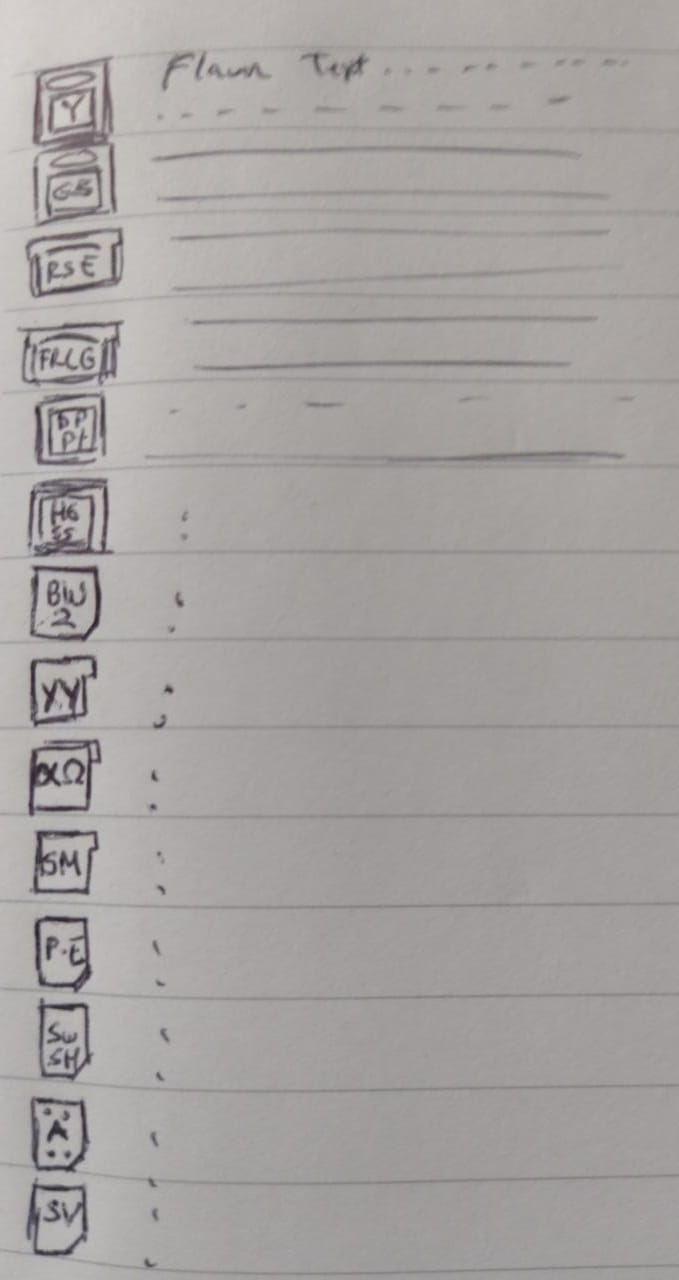 Flavor Text
Y
GS
RSE
FRLG
DP
Pt
HG
SS
BW
2
XY
αΩ
SM
P.E
SW
SH
A
SV